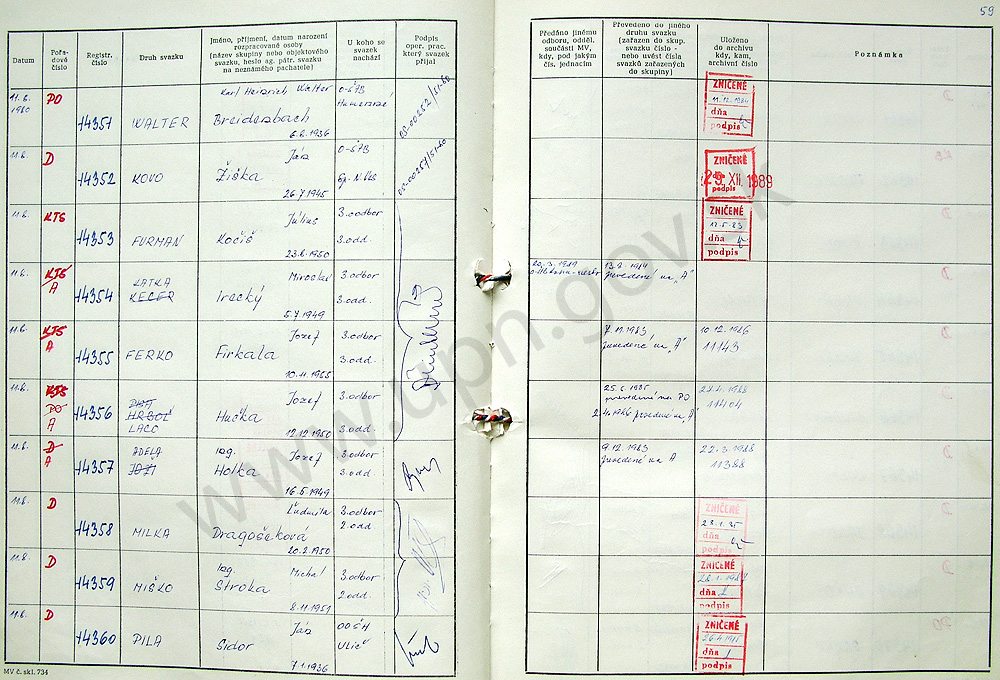 59
Datum
Pořa-
dové
číslo
Registr.
číslo
Druh svazku
Jméno, příjmení, datum narození
rozpracované osoby
(název skupiny nebo objektového
svazku, heslo ag. pátr. svazku
na neznámého pachatele)
U koho se
svazek
nachází
Podpis
oper. prac.
který svazek
přijal
Předáno jinému
odboru, odděl.
součásti MV,
kdy, pod jakým
čís. jednacím
Převedeno do jiného
druhu svazku
(zařazen do skup.
svazku číslo -
nebo uvést čísla
svazků zařazených
do skupiny)
Uloženo
do archivu
kdy, kam,
archivní číslo
Poznámka
11.6.
1980
PO
14351
WALTER
Karl Heinrich Walter
Breidenbach
6.6.1936
ZNIČENÉ
dňa
podpis
11.6.
D
14352
KOVO
Ján
Žiška
26.7.1945
ZNIČENÉ
29. XII. 1989
podpis
11.6.
KTS
14353
FURMAN
Július
Kočiš
23.6.1950
3.odbor
3.odd.
ZNIČENÉ
12.5.83
dňa
podpis
11.6.
KTS
A
14354
KATKA
KECER
Miroslav
Irecký
5.7.1949
3.odbor
3.odd.
prevedené na „A"
11.6.
KTS
A
14355
FERKO
Jozef
Firkala
10.11.1955
3.odbor
3.odd.
7.11.1983
prevedené na „A"
10.12.1986
11143
11.6.
KTS
PO
A
14356
HRBOĽ
LACO
Jozef
Hučka
12.12.1950
3.odbor
3.odd.
prevedené na PO
prevedené na „A"
11404
11.6.
D
A
14357
ADELA
Ing.
Jozef
Holka
16.5.1949
3.odbor
3.odd
9.12.1983
prevedené na A
22.3.1988
11388
11.6.
D
14358
MILKA
Ľudmila
Dragošeková
20.2.1950
3.odbor
2.odd
ZNIČENÉ
dňa
podpis
D
14359
MIŠKO
Ing.
Michal
Stroka
8.11.1951
3.odbor
2.odd.
ZNIČENÉ
dňa
podpis
11.6.
D
14360
PILA
Ján
Sidor
7.1.1936
OOŠH
Ulič
ZNIČENÉ
dňa
podpis
MV č. skl. 734
www.upn.gov.sk